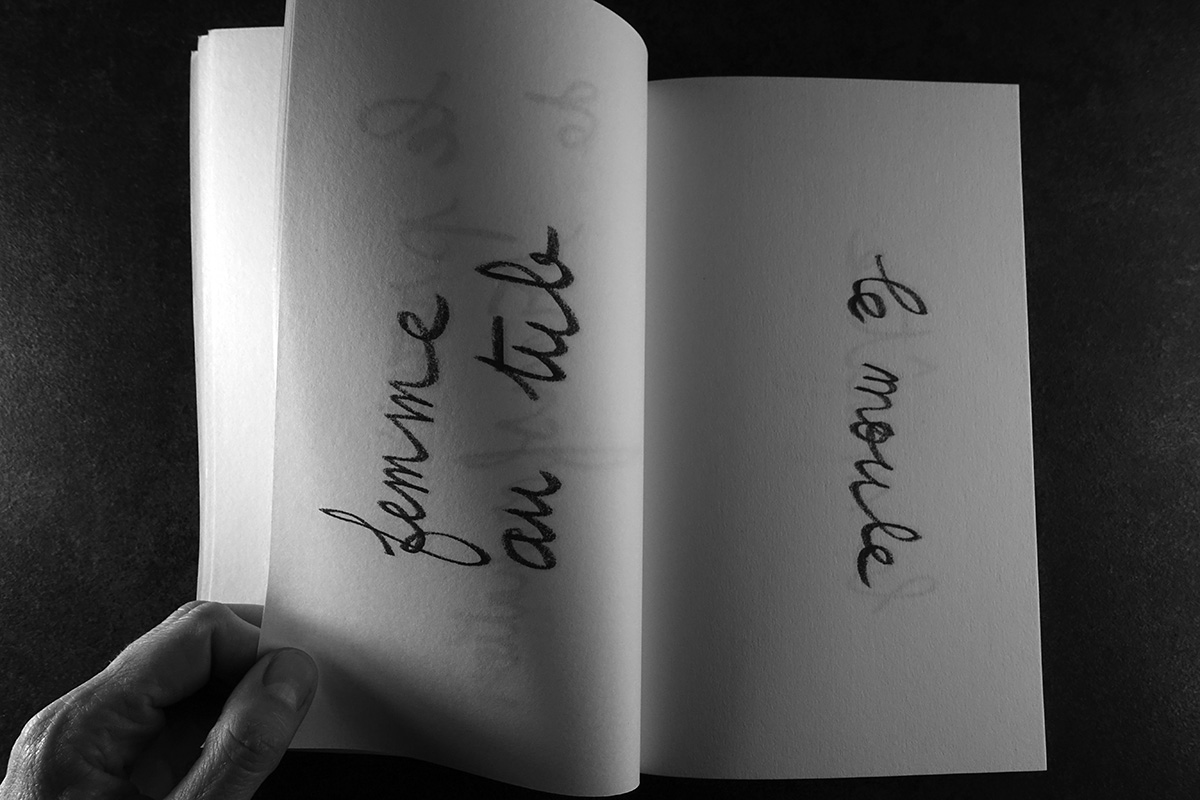 femme
au tub
le moule